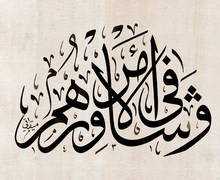 وشاورهم في الأمر